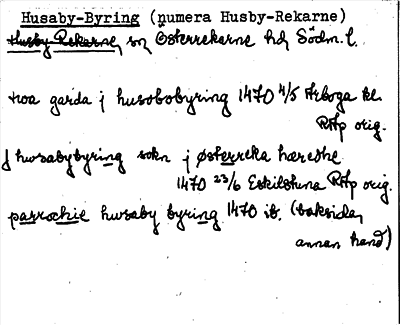 Husaby-Byring (numera Husby-Rekarne)
Husby-Rekarne, sn Österrekarne hd, Södm. l.
twa garda j husobobyring 1470 4/5 Arboga kl.
RAp orig.
J husabybyring sokn j østerreka hæredhe
1470 23/6 Eskilstuna RAp orig.
parrochie husaby byring 1470 ib. (baksidan,
annan hand)